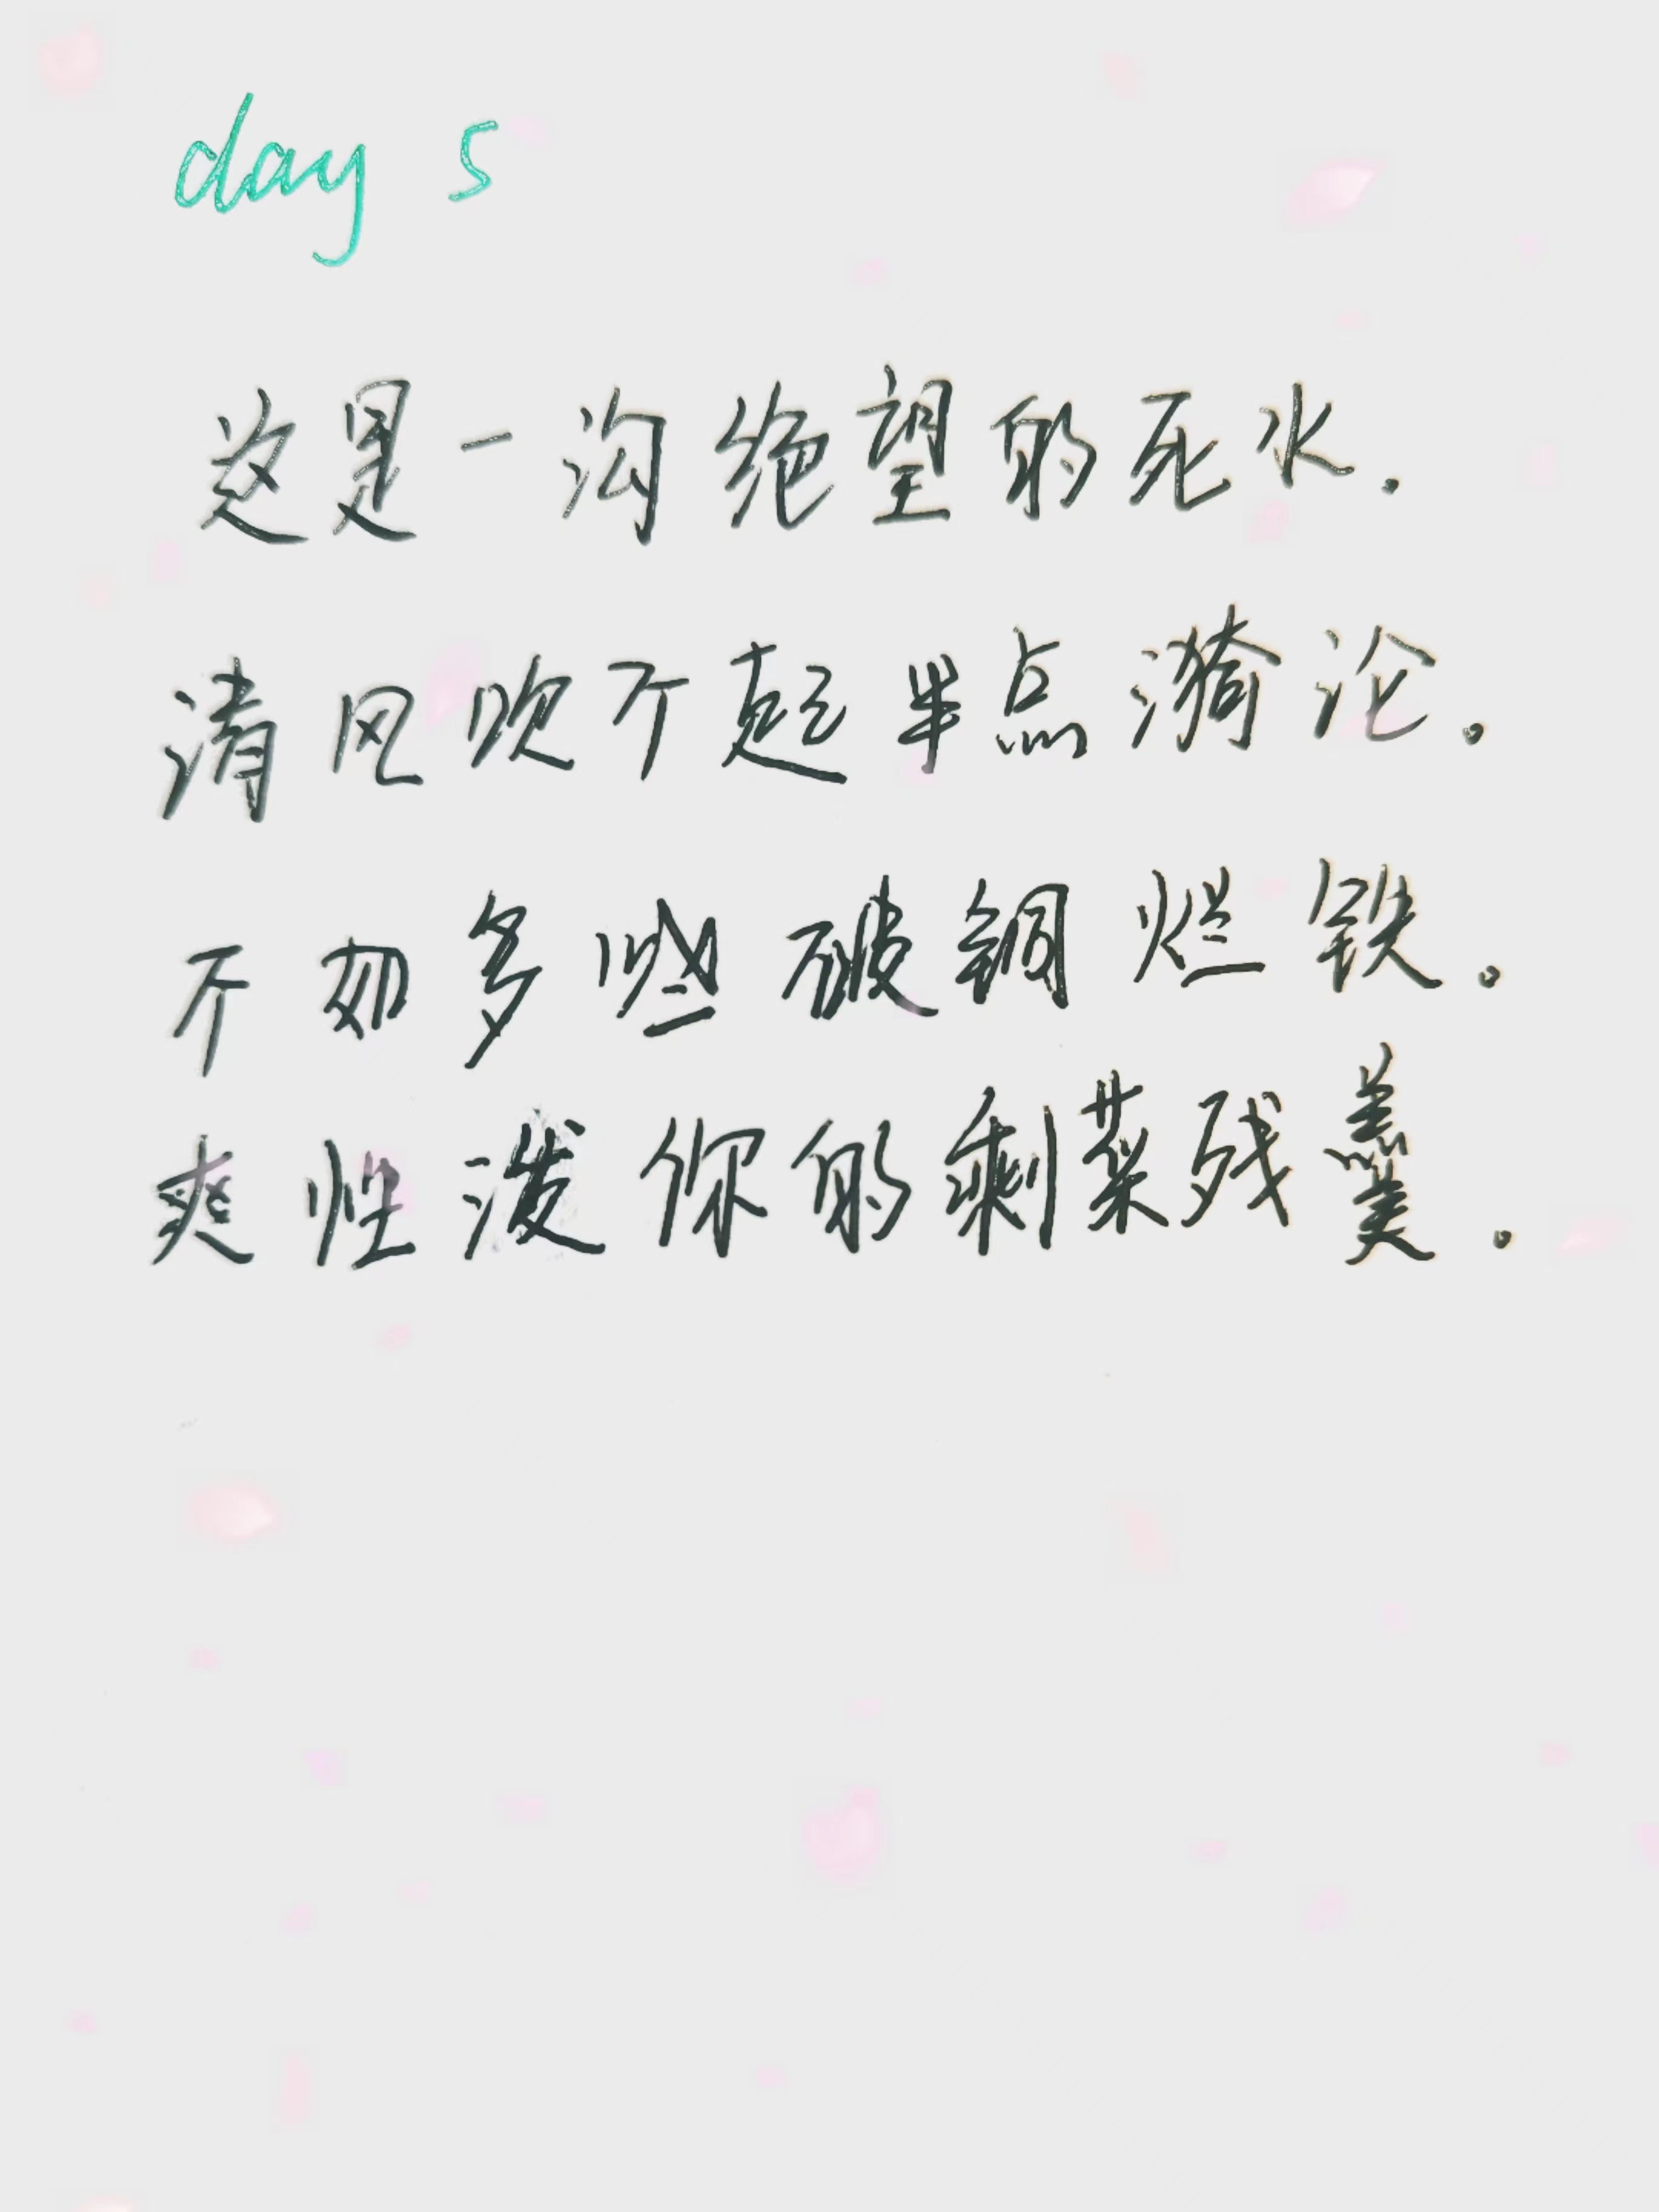 day 5
这是一沟绝望的死水.
清风吹不起半点漪沦。
不如多些破铜烂铁。
爽性泼你的剩菜残羹。